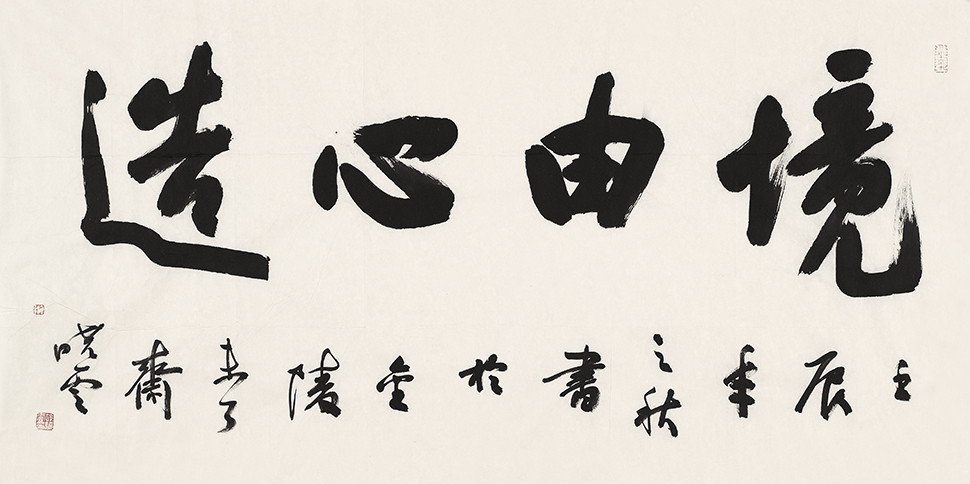 境由心造
壬辰年之秋書於金陵未了齋
晓雲